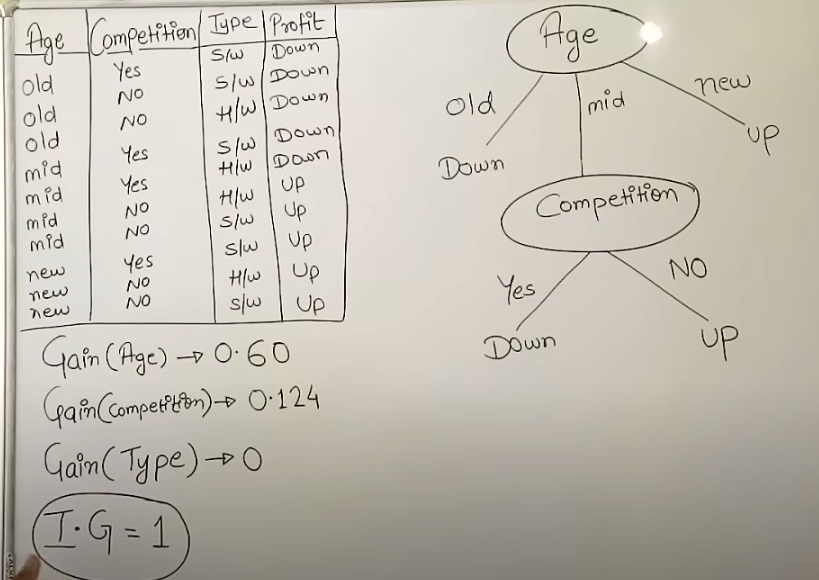 Age Competition Type Profit
old Yes S/w Down
old NO S/w Down
old NO H/w Down
mid Yes S/w Down
mid Yes H/w Down
mid NO H/w UP
mid NO S/w UP
new Yes S/w UP
new NO H/w Up
new NO S/w Up
Gain(Age) → 0.60
Gain(Competition) → 0.124
Gain(Type) → 0
I.G = 1
Age
Old mid new
Down UP
Competition
Yes NO
Down UP